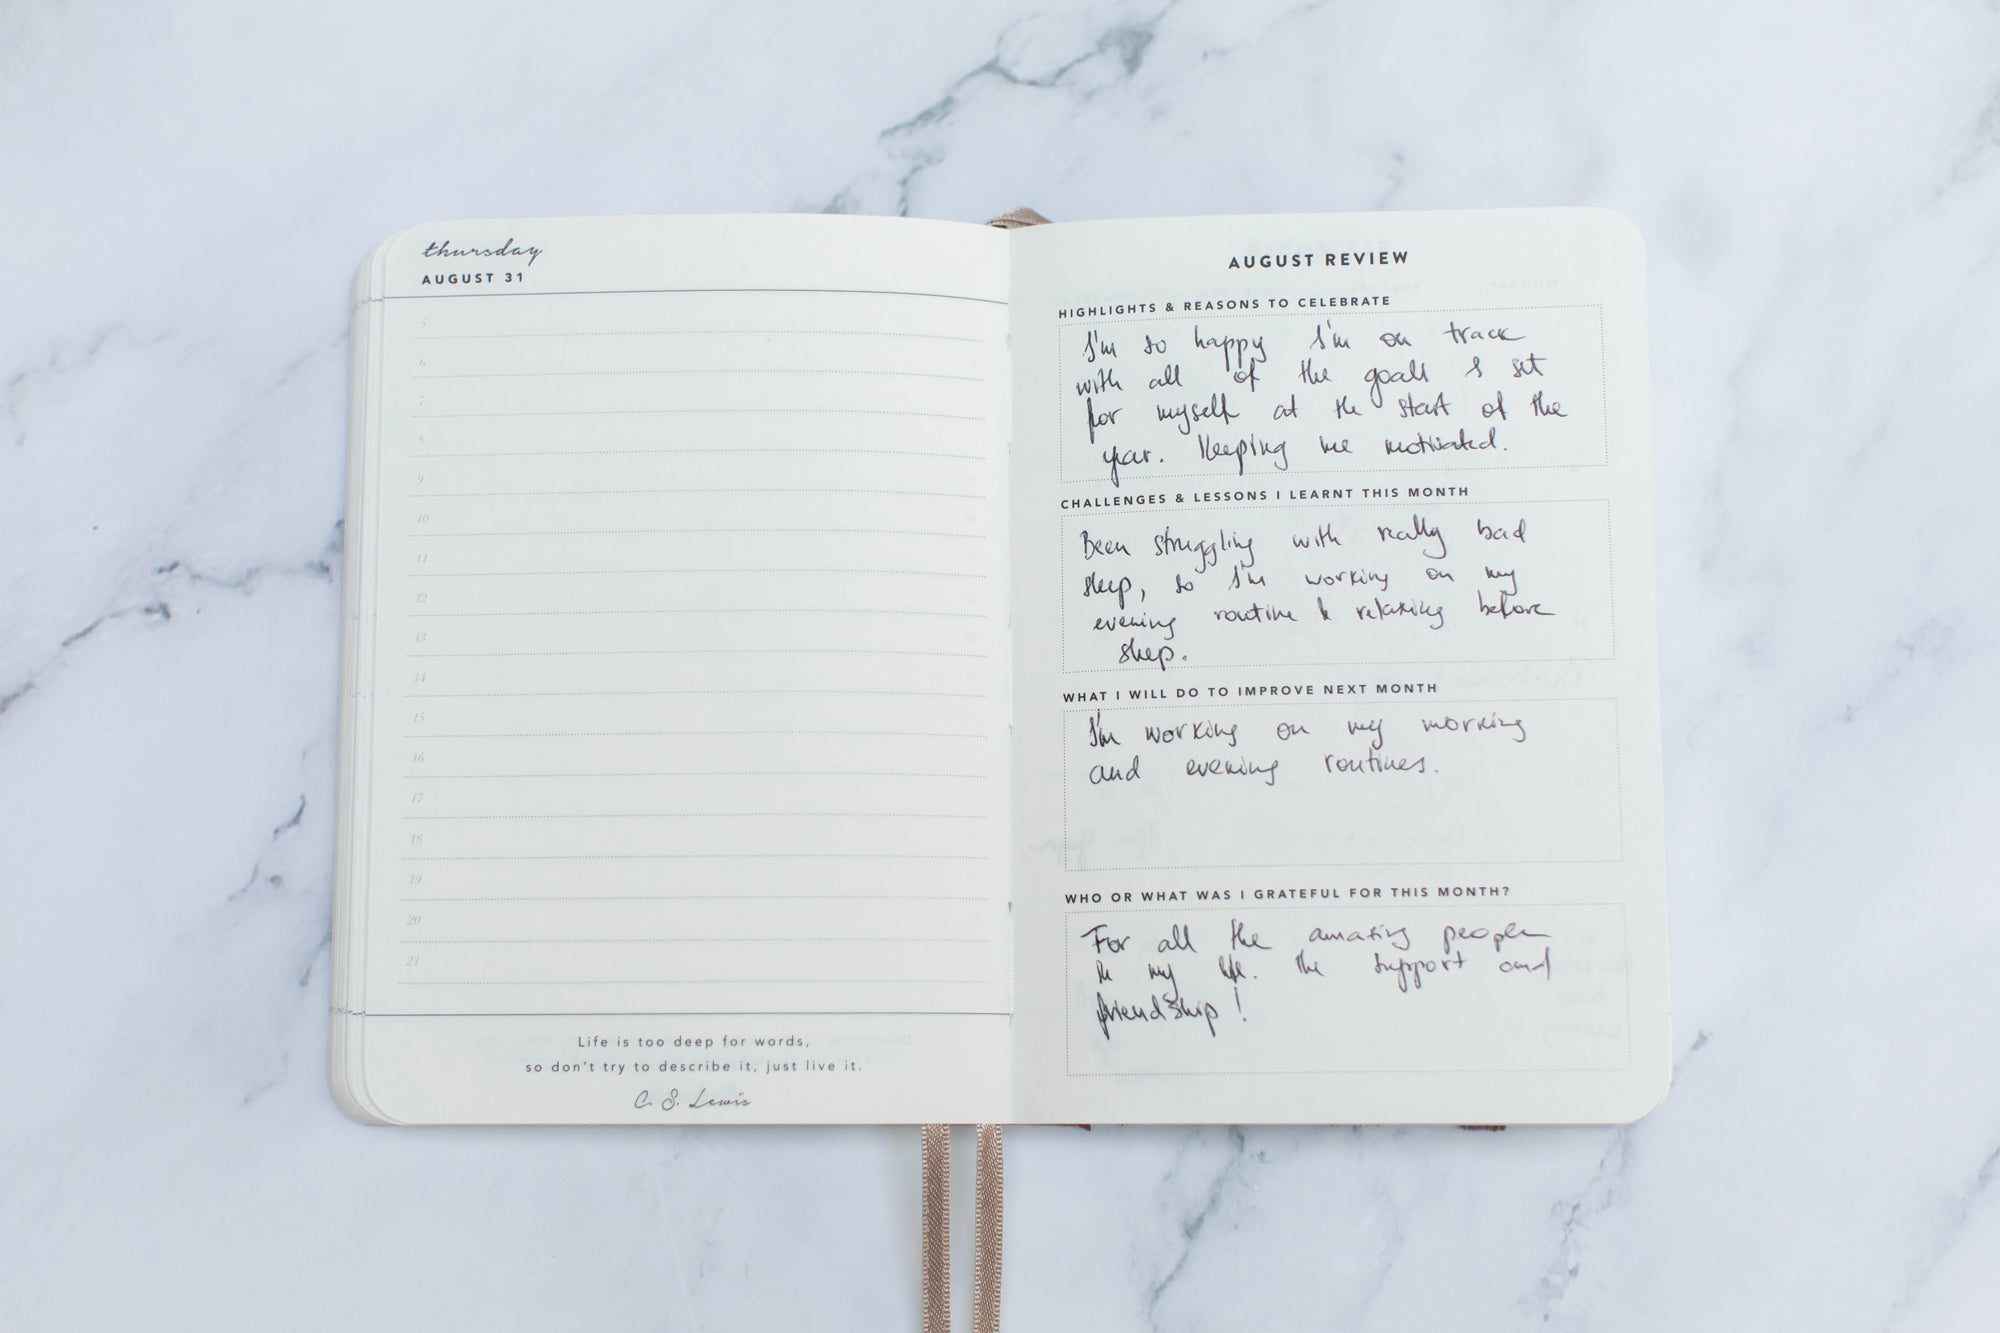 thursday
AUGUST 31
5
6
7
8
9
10
11
12
13
14
15
16
17
18
19
20
21
Life is too deep for words,
so don't try to describe it, just live it.
C. S. Lewis
AUGUST REVIEW
HIGHLIGHTS & REASONS TO CELEBRATE
I'm so happy I'm on track
with all of the goals I set
for myself at the start of the
year. Keeping me motivated.
CHALLENGES & LESSONS I LEARNT THIS MONTH
Been struggling with really bad
sleep, so I'm working on my
evening routine & relaxing before
sleep.
WHAT I WILL DO TO IMPROVE NEXT MONTH
I'm working on my morning
and evening routines.
WHO OR WHAT WAS I GRATEFUL FOR THIS MONTH?
For all the amazing people
in my life. The support and
friendship!